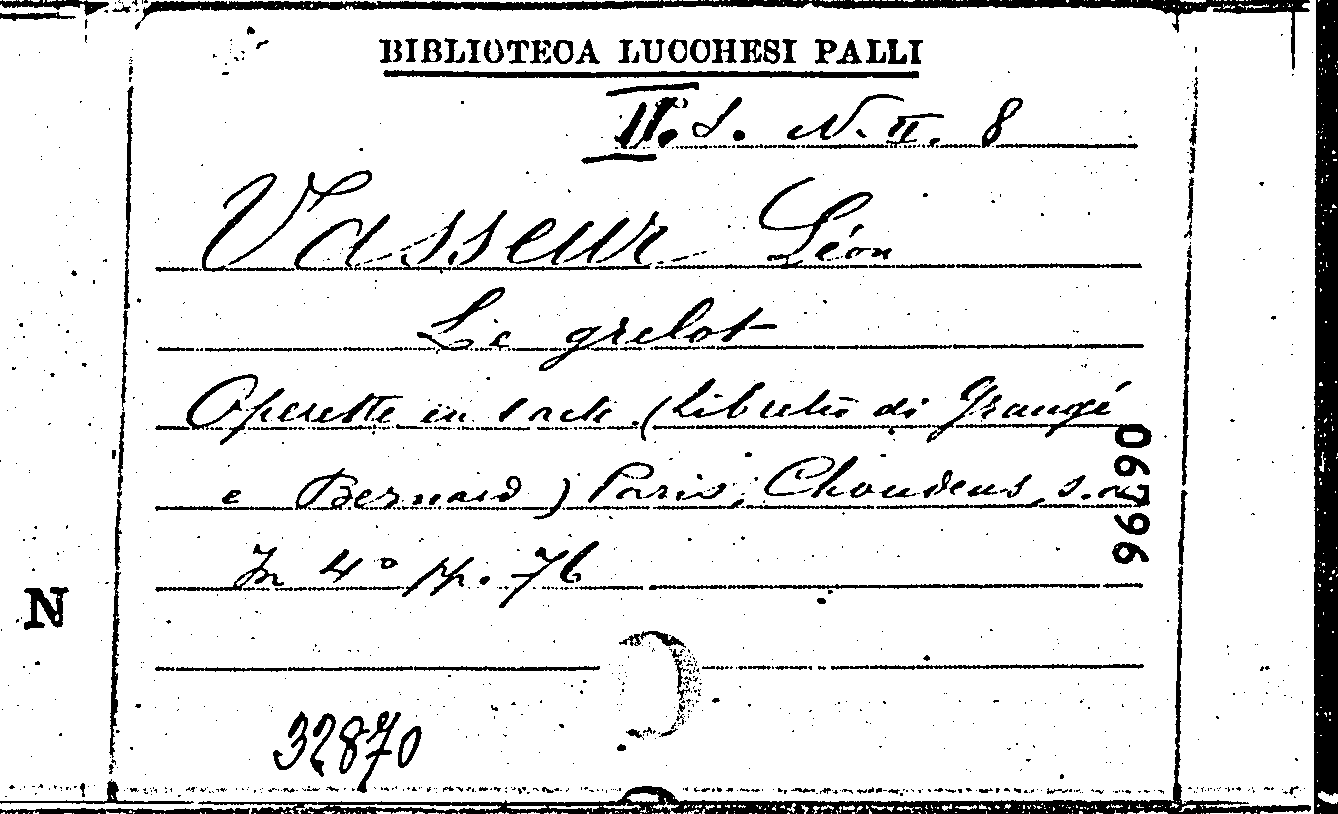 BIBLIOTECA LUCCHESI PALLI
II. S. N. II. 8
Vasseur Léon
Le grelot
Operette en 1 acte (Libretto di Grangé
e Bernard) Paris, Choudens, s.a.
In 4° pp. 76
06796
N
32870